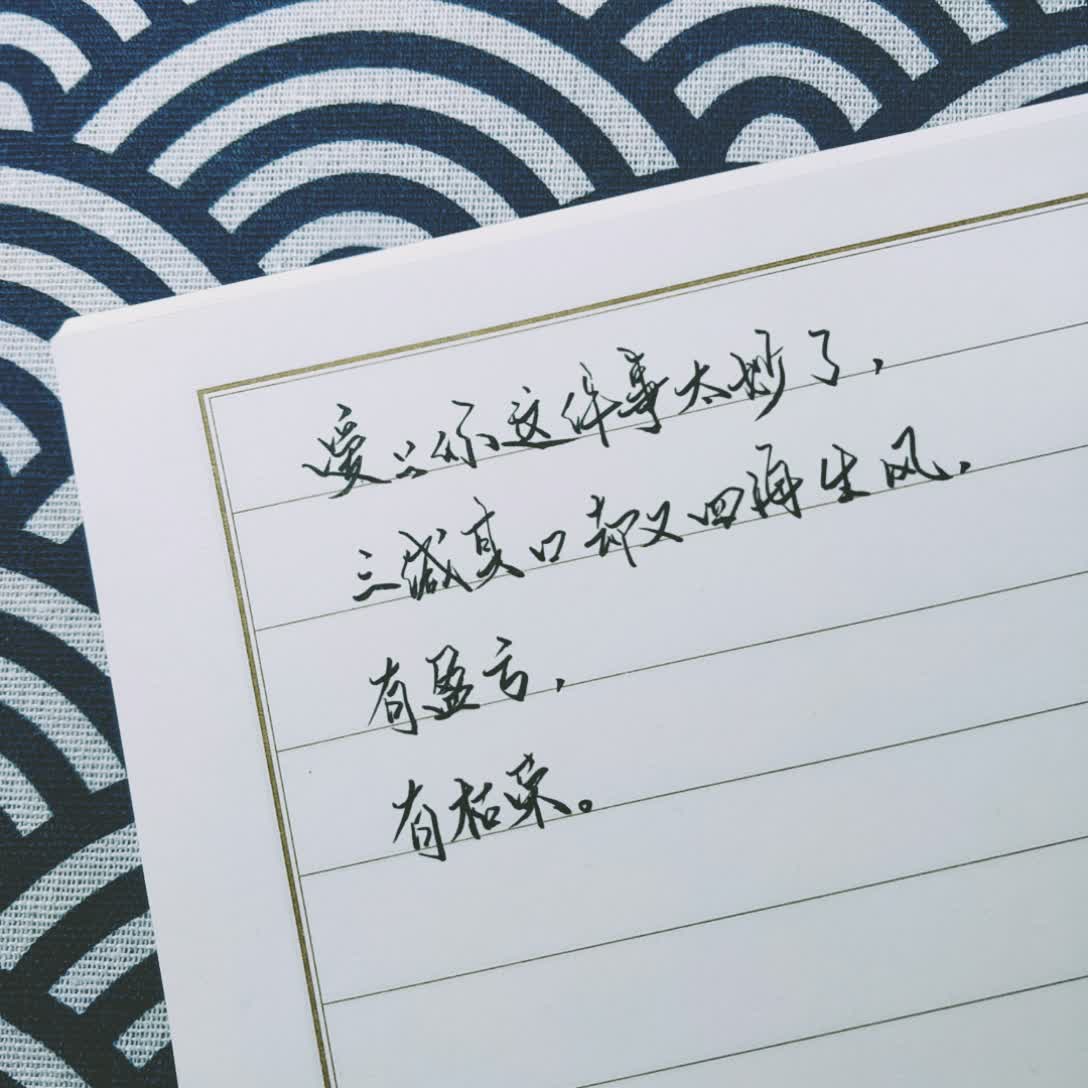 爱上你这件事太妙了，
三缄其口却又四海生风，
有盈亏，
有枯荣。